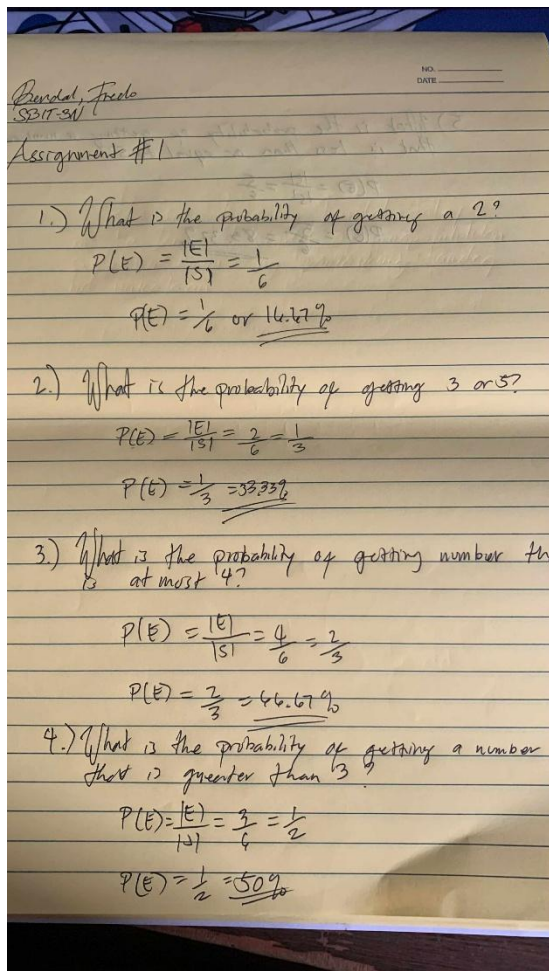 NO.
DATE
Fredo
SBIT-3N
Assignment #1
1.) What is the probability of getting a 2?
P(E) = |E|/|S| = 1/6
P(E) = 1/6 or 16.67%
2.) What is the probability of getting 3 or 5?
P(E) = |E|/|S| = 2/6 = 1/3
P(E) = 1/3 = 33.33%
3.) What is the probability of getting number th
is at most 4?
P(E) = |E|/|S| = 4/6 = 2/3
P(E) = 2/3 = 66.67%
4.) What is the probability of getting a number
that is greater than 3?
P(E) = |E|/|S| = 3/6 = 1/2
P(E) = 1/2 = 50%